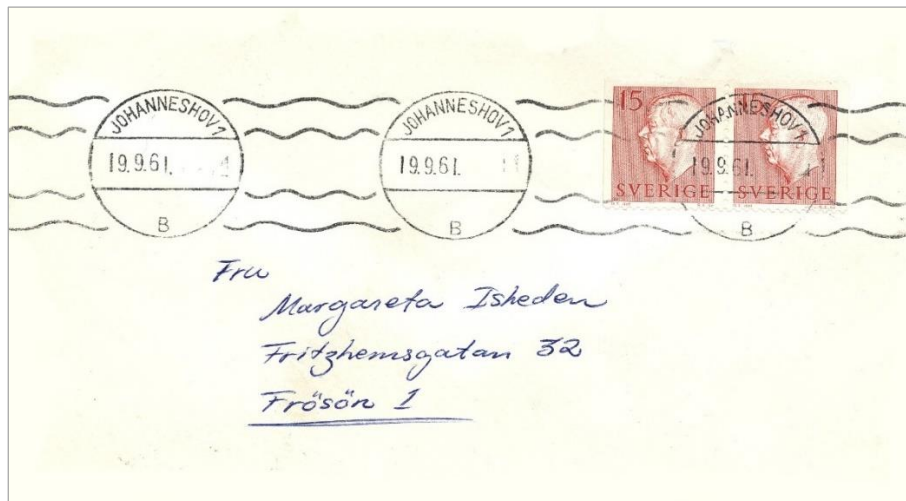 JOHANNESHOV 1
19.9.61.
B
JOHANNESHOV 1
19.9.61.
B
15
SVERIGE
15
SVERIGE
JOHANNESHOV 1
19.9.61.
B
Fru
Margareta Isheden
Fritzhemsgatan 32
Frösön 1